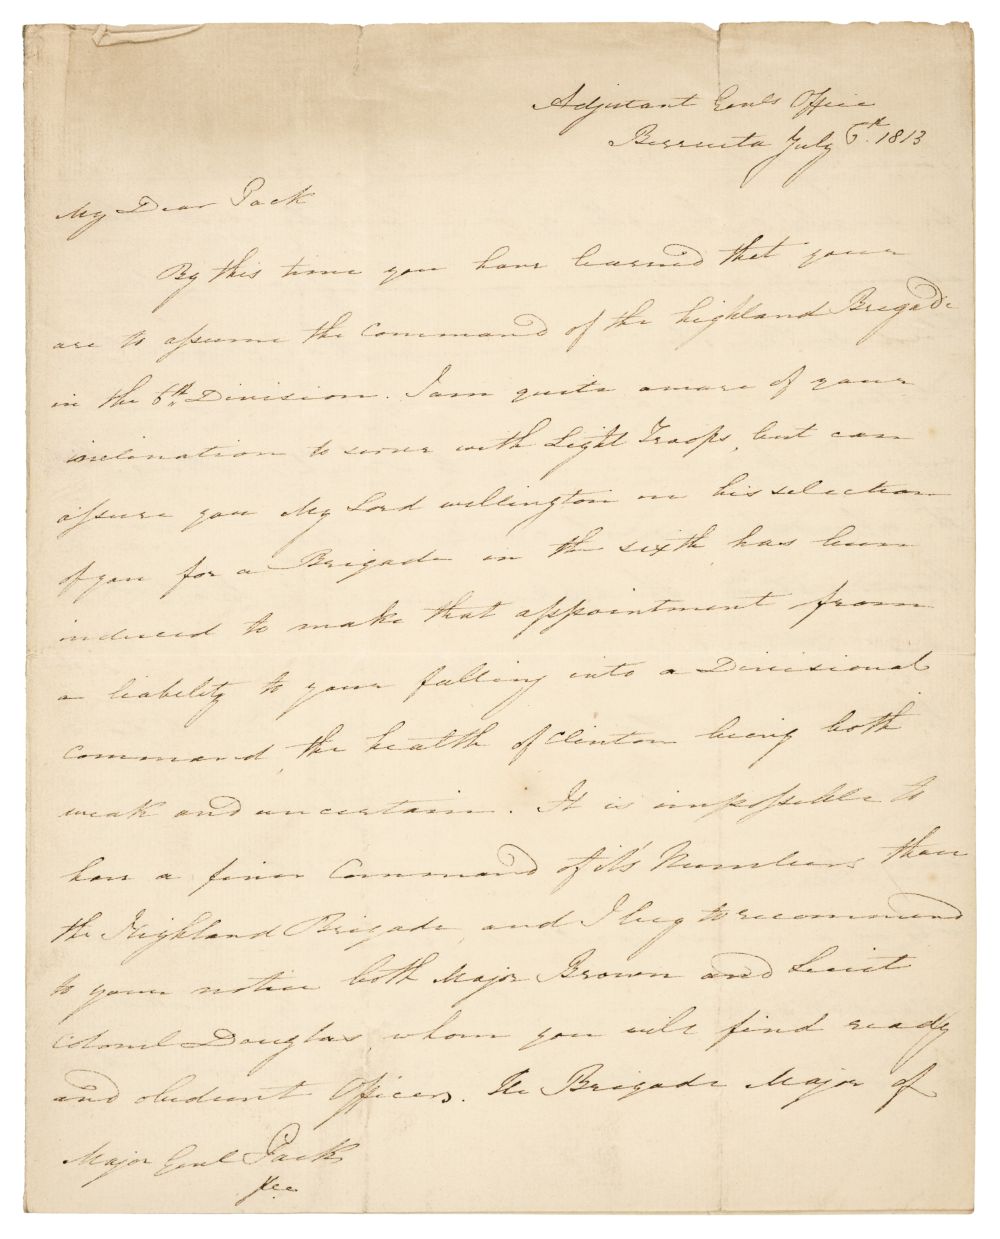 Adjutant Genls Office
Berrueta July 6th. 1813
My Dear Pack
By this time you have learned that your
are to assume the Command of the highland Brigade
in the 6th. Division. I am quite aware of your
inclination to serve with Light Troops, but can
assure you My Lord wellington in his selection
of you for a Brigade in the sixth has been
induced to make that appointment from
a liability to your falling into a Divisional
Command, the health of Clinton being both
weak and uncertain. It is impossible to
have a finer Command of it's Numbers than
the Highland Brigade, and I beg to recommend
to your notice both Major Brown and Lieut
Colonel Douglas, whom you will find ready
and obedient Officers. The Brigade Major of
Major Genl Pack
&c.